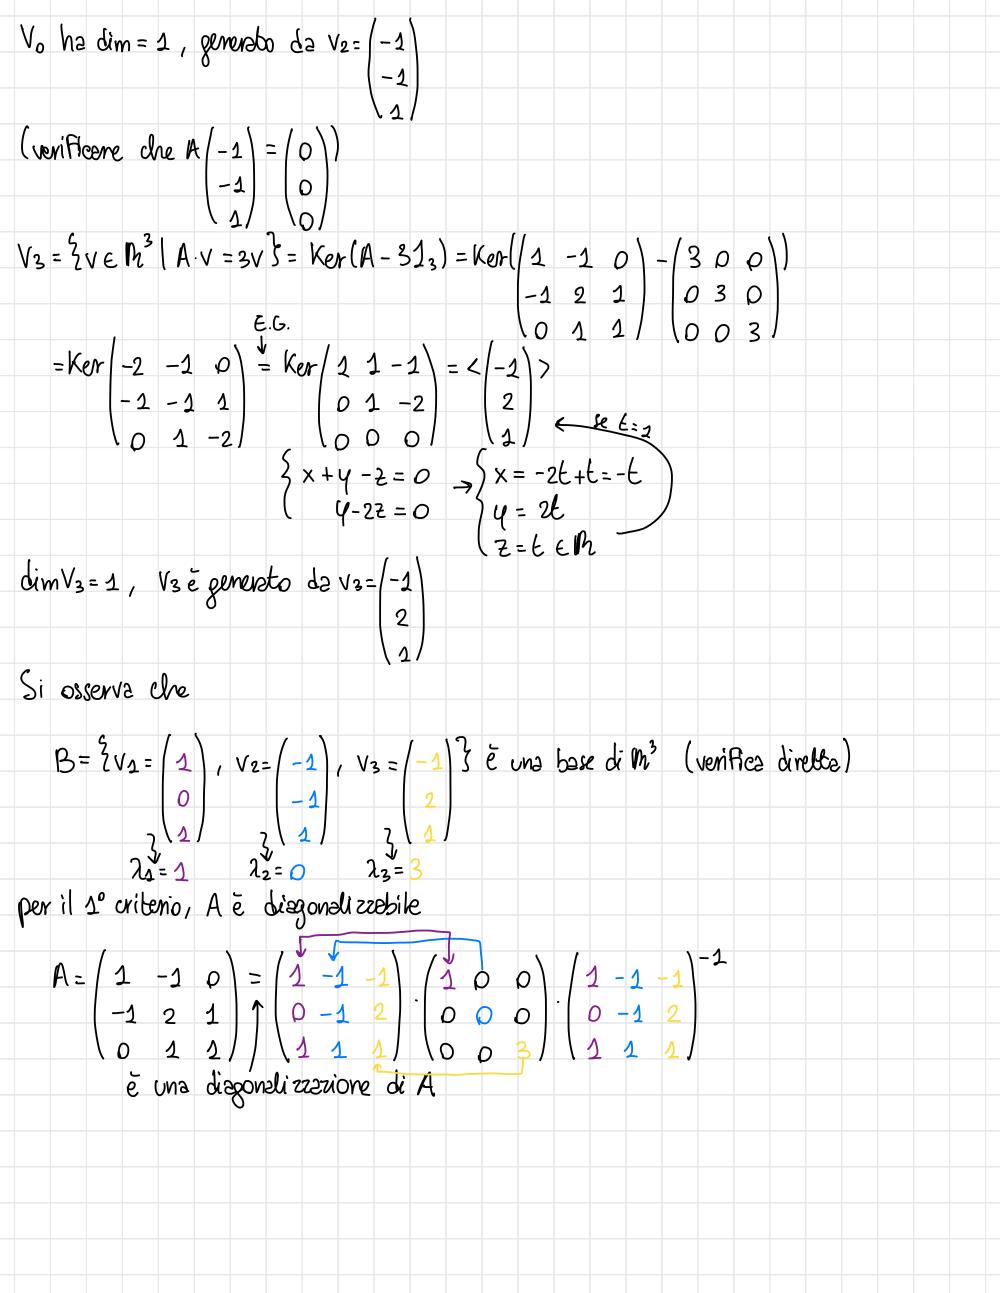 V₀ ha dim = 1, generato da v₂ = (-1 -1 1)
(verificare che A (-1 -1 1) = (0 0 0))
V₃ = {v ∈ ℝ³ | A·v = 3v} = Ker(A - 3 1₃) = Ker((1 -1 0 / -1 2 1 / 0 1 1) - (3 0 0 / 0 3 0 / 0 0 3))
E.G.
= Ker (-2 -1 0 / -1 -1 1 / 0 1 -2) = Ker (1 1 -1 / 0 1 -2 / 0 0 0) = <(-1 2 1)>
se t=1
{ x + y - z = 0 → { x = -2t + t = -t
y - 2z = 0 y = 2t
z = t ∈ ℝ
dim V₃ = 1, V₃ è generato da v₃ = (-1 2 1)
Si osserva che
B = {v₁ = (1 0 1), v₂ = (-1 -1 1), v₃ = (-1 2 1)} è una base di ℝ³ (verifica diretta)
λ₁ = 1 λ₂ = 0 λ₃ = 3
per il 1° criterio, A è diagonalizzabile
A = (1 -1 0 / -1 2 1 / 0 1 1) = (1 -1 -1 / 0 -1 2 / 1 1 1) · (1 0 0 / 0 0 0 / 0 0 3) · (1 -1 -1 / 0 -1 2 / 1 1 1)⁻¹
è una diagonalizzazione di A